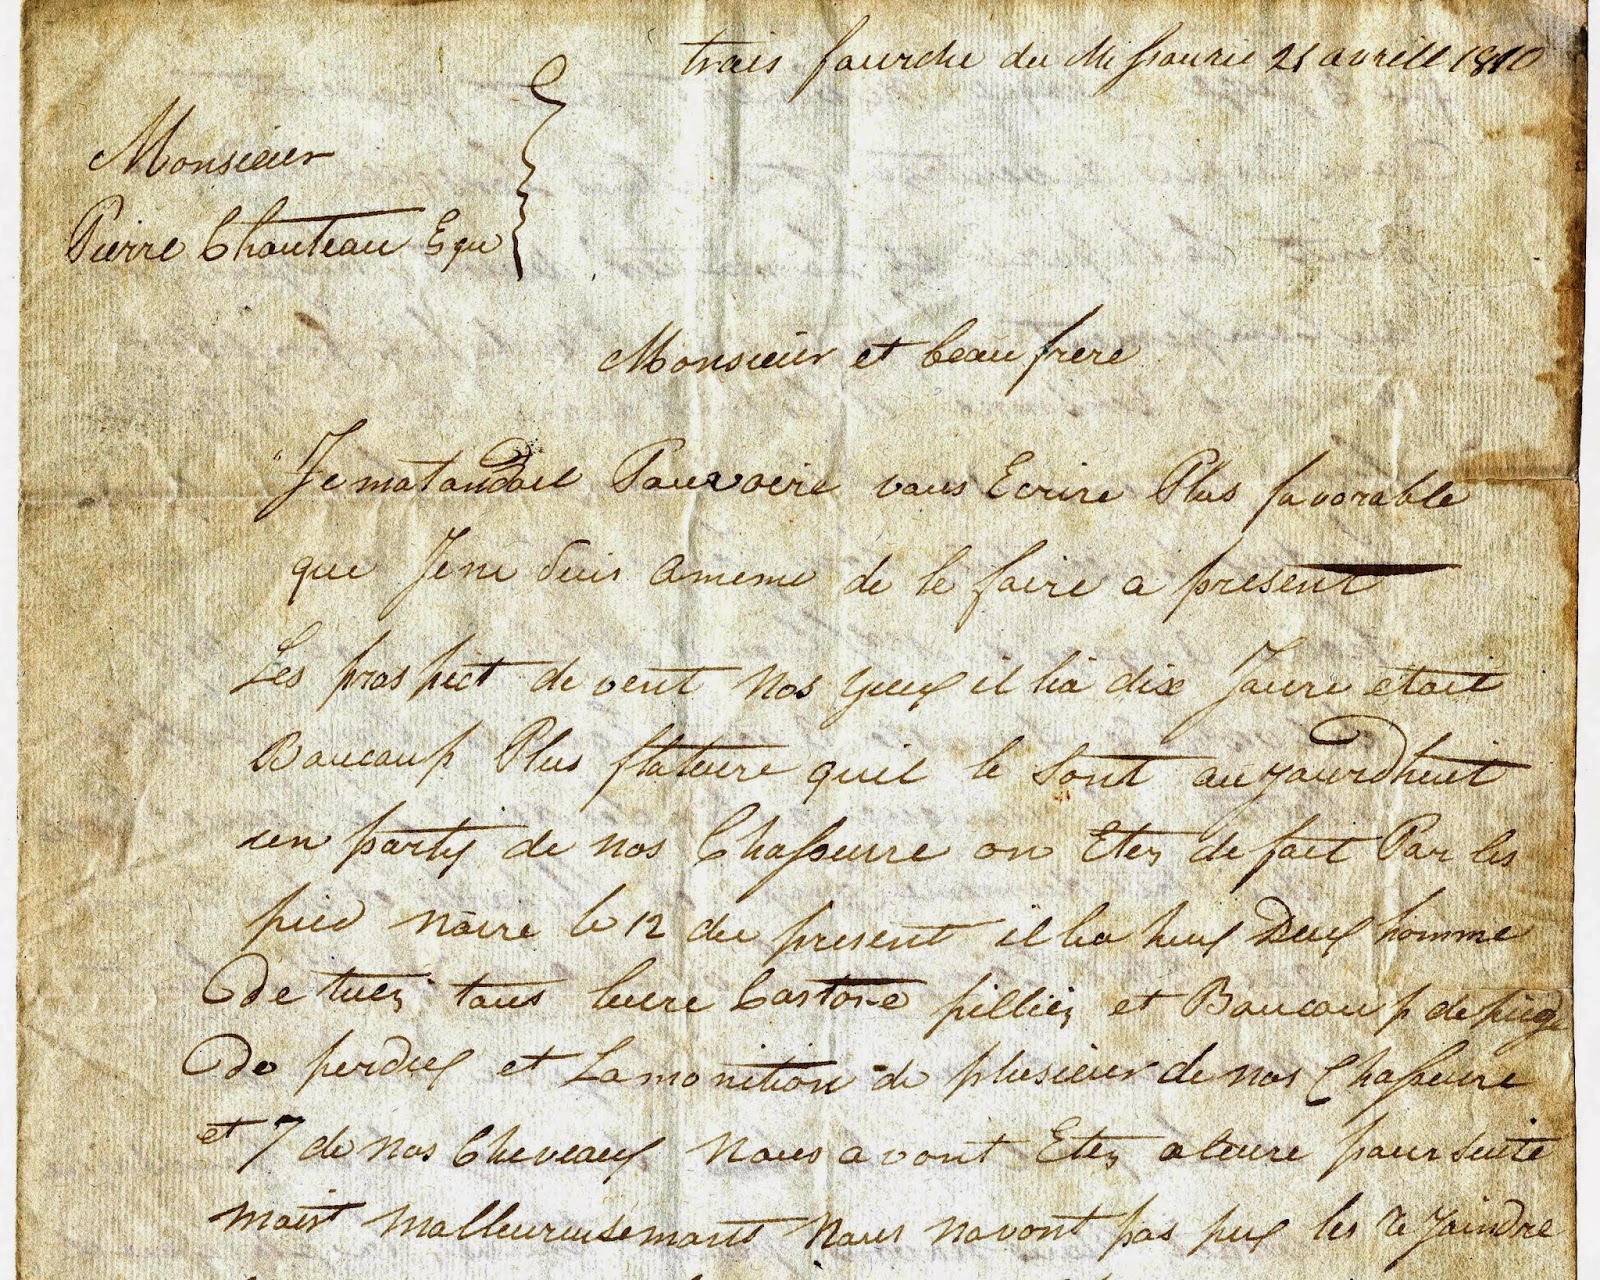 trais fourche du Missourie 21 avrill 1810
Monsieur
Pierre Chouteau Equ
Monsieur et beau frere
Je matandoit Pouvoire vous Ecrire Plus favorable
que Jene suis ameme de le faire a present
Les prospect devent nos yeux il lia dix Joure etait
Baucoup Plus flateure quil le sont aujourdhuit
un party de nos Chasseure on Etez defait Par les
pied noire le 12 du present il lia heux Deux homme
De tuez tous leure Castore pilliez et Baucoup de piege
De perdux et Lamonition de plusieur de nos Chasseure
et 7 de nos Cheveaux Nous avont Etez a leure poursuite
maist malleureusemants Nous navont pas pux les rejoindre